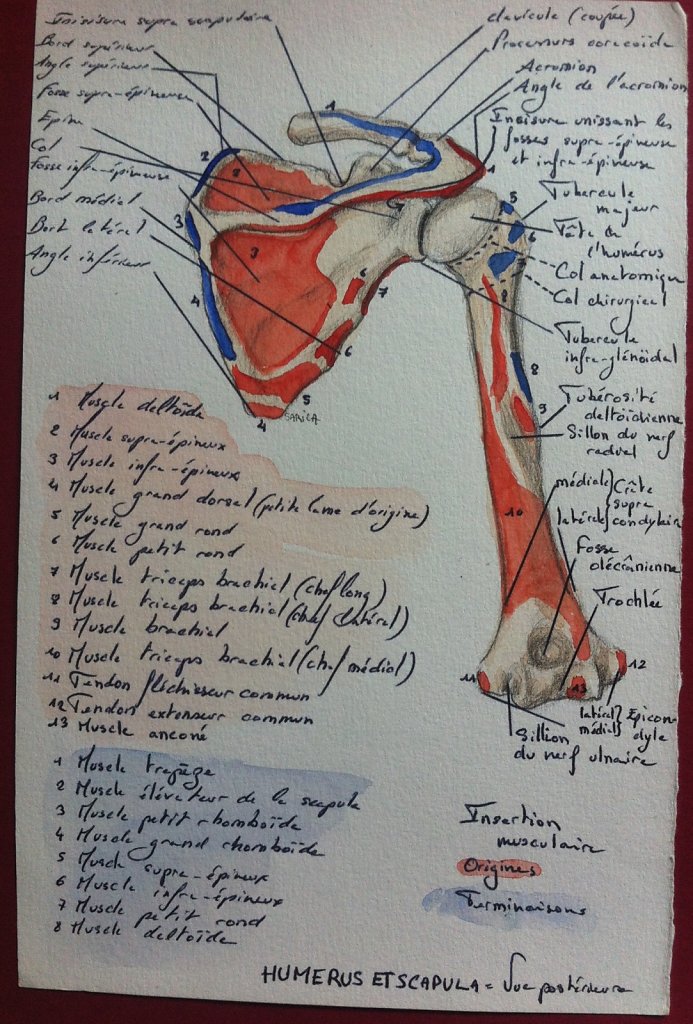 Incisure supra scapulaire
Bord supérieur
Angle supérieur
Fosse supra-épineuse
Epine
Col
Fosse infra-épineuse
Bord médial
Bort latéral
Angle inférieur
clavicule (coupée)
Processurs coracoïde
Acromion
Angle de l'acromion
Incisure unissant les
fosses supra-épineuse
et infra-épineuse
Tubercule
majeur
Tête de
l'humérus
Col anatomique
Col chirurgical
Tubercule
infra-glénoïdal
Tubérosité
deltoïdienne
Sillon du nerf
radual
médiale
latérale
Crête
supra
condylaire
Fosse
olécrânienne
Trochlée
latéral
médial
Epicon-
dyle
Sillion
du nerf ulnaire
1
2
2
3
3
4
4
5
6
6
7
1
5
6
7
8
8
9
10
11
12
13
SARICA
1 Muscle deltoïde
2 Muscle supra-épineux
3 Muscle infra-épineux
4 Muscle grand dorsal (petite lame d'origine)
5 Muscle grand rond
6 Muscle petit rond
7 Muscle triceps brachial (chef long)
8 Muscle triceps brachial (chef latéral)
9 Muscle brachial
10 Muscle triceps brachial (chef médiol)
11 Tendon fléchisseur commun
12 Tendon extenseur commun
13 Muscle anconé
1 Muscle trapèze
2 Muscle élévateur de la scapula
3 Muscle petit rhomboïde
4 Muscle grand rhomboïde
5 Muscle supra-épineux
6 Muscle infra-épineux
7 Muscle petit rond
8 Muscle deltoïde
Insertion
musculaire
Origines
Terminaisons
HUMERUS ET SCAPULA = Vue postérieure